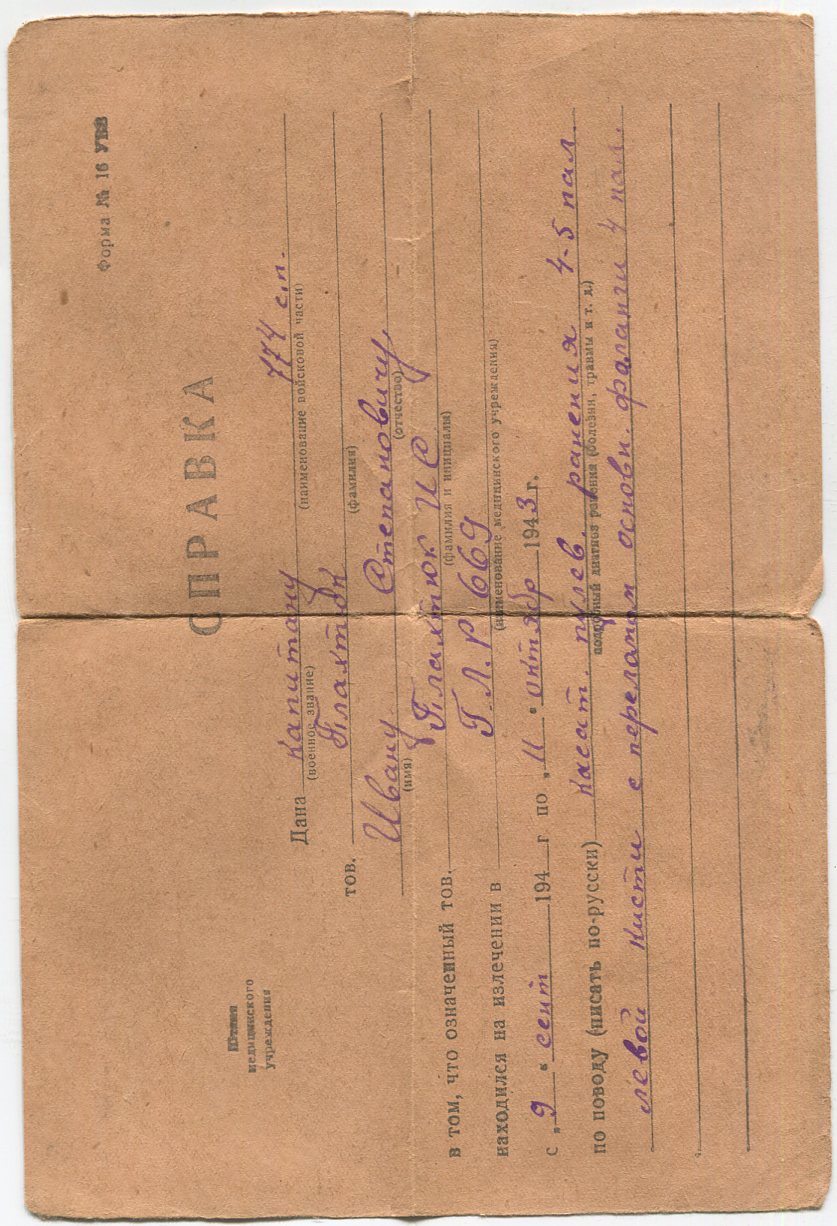 Форма № 16 УВВ
СПРАВКА
Штамп
медицинского
учреждения
Дана капитану 774 с.п.
(военное звание) (наименование войсковой части)
тов. Плахтюк
(фамилия)
Ивану Степановичу
(имя) (отчество)
в том, что означенный тов. Плахтюк И С
(фамилия и инициалы)
находился на излечении в Г Л Р 669
(наименование медицинского учреждения)
с „9“ сент 194 г по „11“ октябр 1943 г.
по поводу (писать по-русски) касат. пулев. ранения 4-5 пал.
подробный диагноз ранения (болезни, травмы и т. д.)
левой кисти с переломом основн. фаланги 4 пал.